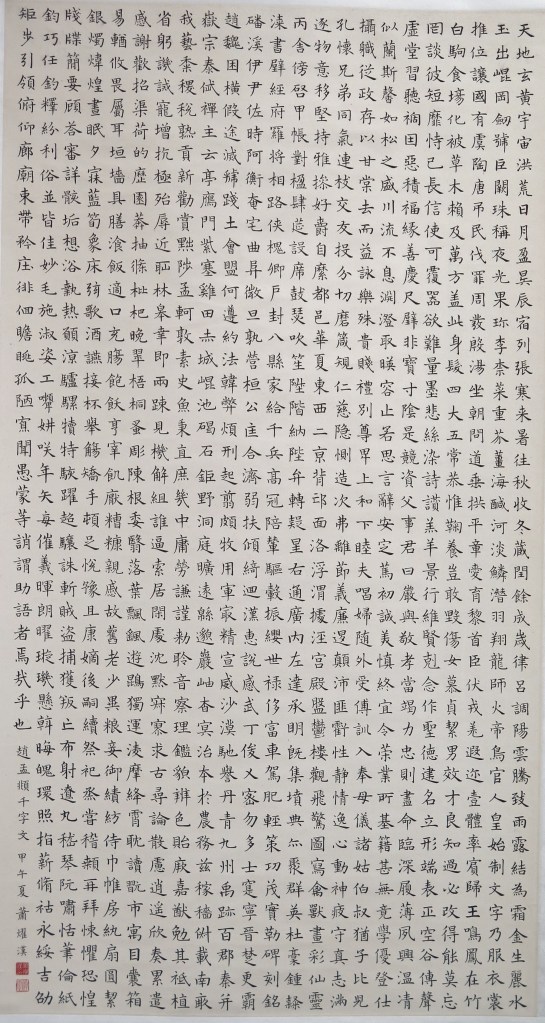 天地玄黄宇宙洪荒日月盈昃辰宿列張寒来暑往秋收冬藏閏餘成歲律呂調陽雲騰致雨露結為霜金生麗水
玉出崐岡劍號巨闕珠稱夜光果珎李柰菜重芥薑海醎河淡鱗潛羽翔龍師火帝鳥官人皇始制文字乃服衣裳
推位讓國有虞陶唐弔民伐罪周發殷湯坐朝問道垂拱平章愛育黎首臣伏戎羌遐迩壹體率賓歸王鳴鳳在竹
白駒食場化被草木賴及萬方盖此身髮四大五常恭惟鞠養豈敢毀傷女慕貞絜男效才良知過必改得能莫忘
罔談彼短靡恃己長信使可覆器欲難量墨悲絲染詩讃羔羊景行維賢剋念作聖德建名立形端表正空谷傳聲
虛堂習聽禍因惡積福緣善慶尺璧非寶寸陰是競資父事君曰嚴與敬孝當竭力忠則盡命臨深履薄夙興温凊
似蘭斯馨如松之盛川流不息淵澄取暎容止若思言辭安定篤初誠美慎終宜令榮業所基籍甚無竟學優登仕
攝職從政存以甘棠去而益詠樂殊貴賤禮別尊卑上和下睦夫唱婦隨外受傅訓入奉母儀諸姑伯叔猶子比兒
孔懷兄弟同氣連枝交友投分切磨箴規仁慈隱惻造次弗離節義廉退顛沛匪虧性靜情逸心動神疲守真志滿
逐物意移堅持雅操好爵自縻都邑華夏東西二京背邙面洛浮渭據涇宮殿盤鬱樓觀飛驚圖寫禽獸畫彩仙靈
丙舍傍啓甲帳對楹肆筵設席鼓瑟吹笙陞階納陛弁轉疑星右通廣内左達承明既集墳典亦聚群英杜稾鍾隸
漆書壁經府羅將相路俠槐卿戶封八縣家給千兵高冠陪輦驅轂振纓世禄侈富車駕肥輕策功茂實勒碑刻銘
磻溪伊尹佐時阿衡奄宅曲阜微旦孰營桓公匡合濟弱扶傾綺迴漢惠說感武丁俊乂密勿多士寔寧晉楚更霸
趙魏困橫假途滅虢踐土會盟何遵約法韓弊煩刑起翦頗牧用軍最精宣威沙漠馳譽丹青九州禹跡百郡秦并
嶽宗泰岱禪主云亭鴈門紫塞雞田赤城崐池碣石鉅野洞庭曠遠緜邈巖岫杳冥治本於農務兹稼穡俶載南畝
我藝黍稷稅熟貢新勸賞黜陟孟軻敦素史魚秉直庶幾中庸勞謙謹勑聆音察理鑑貌辨色貽厥嘉猷勉其祗植
省躬譏誡寵增抗極殆辱近恥林臯幸即兩疎見機解組誰逼索居閑處沈默寂寥求古尋論散慮逍遥欣奏累遣
慼謝歡招渠荷的歷園莽抽條枇杷晚翠梧桐蚤彫陳根委翳落葉飄颻遊鵾獨運凌摩絳霄耽讀翫市寓目囊箱
易輶攸畏屬耳垣墻具膳飡飯適口充腸飽飫享宰飢厭糟糠親戚故舊老少異糧妾御績紡侍巾帷房紈扇圓絜
銀燭煒煌晝眠夕寐藍筍象床絃歌酒讌接杯舉觴矯手頓足悦豫且康嫡後嗣續祭祀烝嘗稽顙再拜悚懼恐惶
牋牒簡要顧答審詳骸垢想浴執熱願涼驢騾犢特駭躍超驤誅斬賊盜捕獲叛亡布射遼丸嵇琴阮嘯恬筆倫紙
鈞巧任釣釋紛利俗並皆佳妙毛施淑姿工顰妍咲年矢每催羲暉朗曜璇璣懸斡晦魄環照指薪脩祜永綏吉劭
矩步引領俯仰廊廟束帶矜庄徘徊瞻眺孤陋寡聞愚蒙等誚謂助語者焉哉乎也 趙孟頫千字文 甲午夏 蕭燿漢